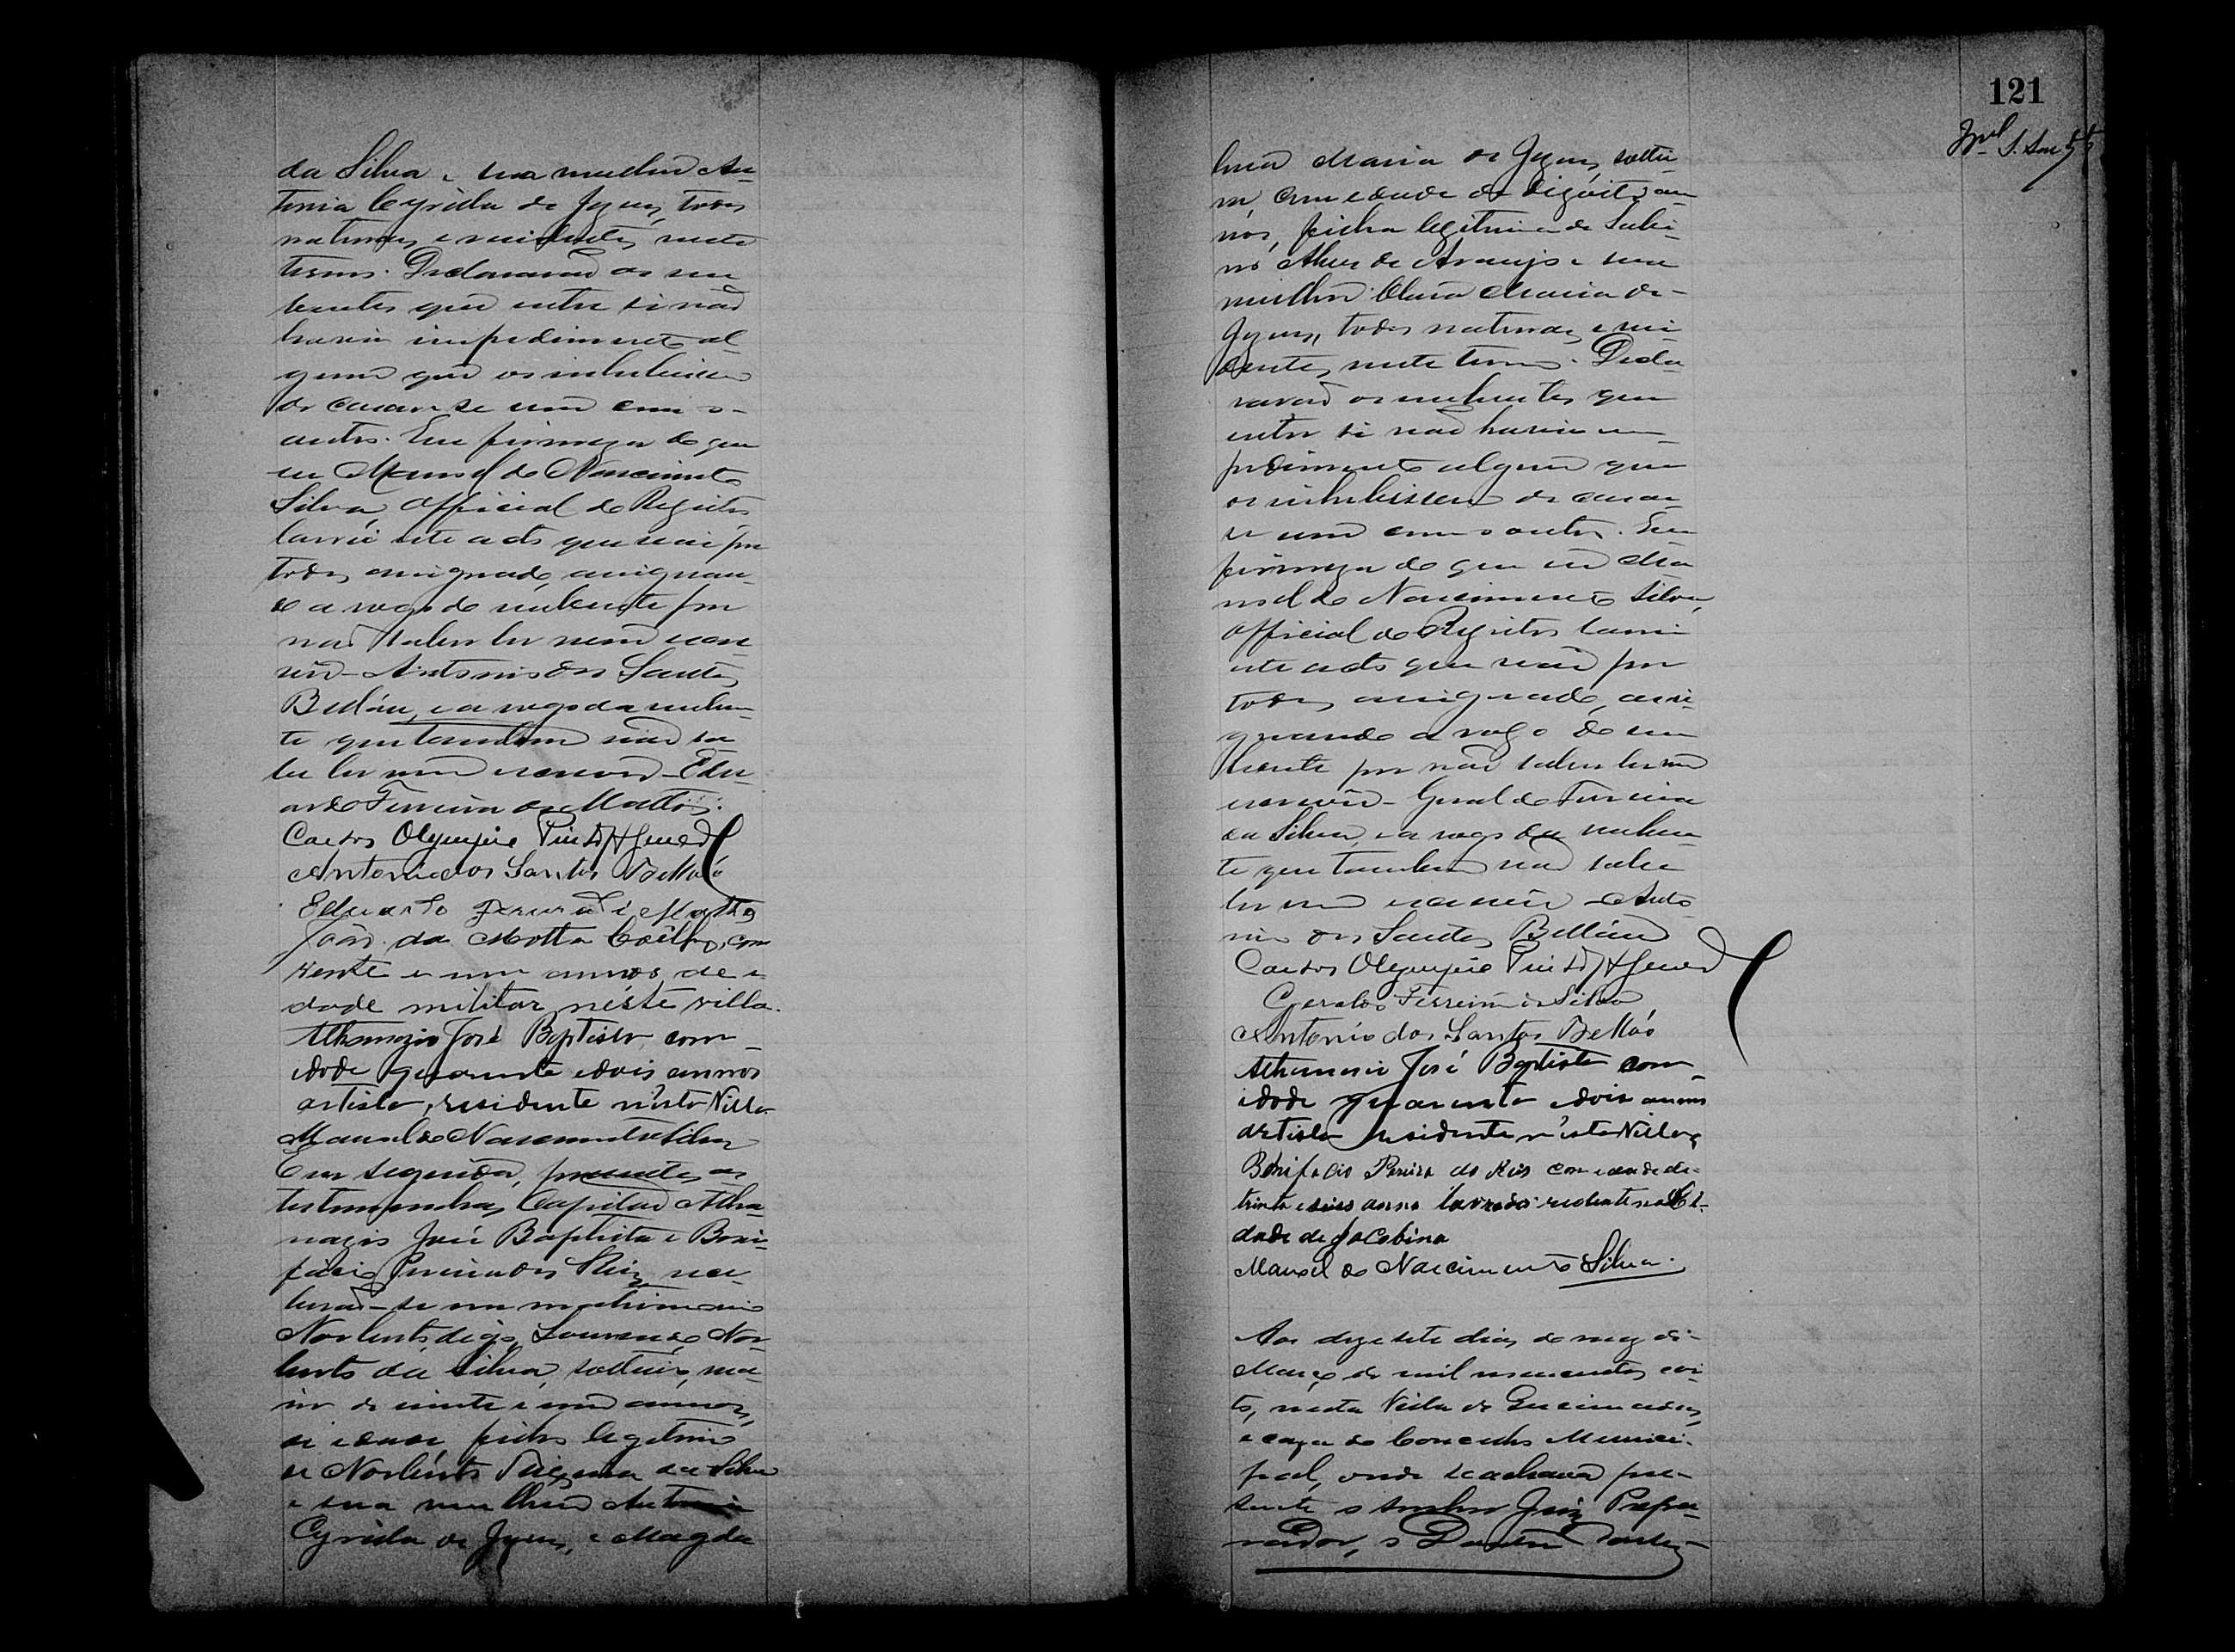 da Silva e sua mulher An-
tonia Cyrilla de Jesus, todos
naturaes e residentes neste
termo. Declararaõ os nu-
bentes que entre si naõ
havia impedimento al-
gum que os inhibisse
de casar-se um com o
outro. Em firmeza do que
eu Manoel do Nascimento
Silva, Official do Registro
lavrei este acto que vai por
todos assignado, assignan-
do a rogo do nubente por
naõ saber ler nem escre-
ver - Antonio dos Santos
Bellau, e a rogo da nuben-
te que tambem naõ sa-
be ler nem escrever - Edu-
ardo Ferreira de Mattos.
Carlos Olympio
Antonio dos Santos
Eduardo Ferreira de Mattos
João da Motta Coêlho, com
vente e um annos de i-
dade militar néste villa.
Athanazio José Baptista com
idade quarenta e dois annos
artista, residente n'esta Villa
Manoel do Nascimento Silva
Em seguida, presentes as
testemunhas, Capitaõ Atha-
nazio José Baptista e Boni-
facio Pereira dos Reis, rece-
beraõ-se em matrimonio
Norberto, digo, Lourenço Nor-
berto da Silva, solteiro, ma-
ior de vinte e um annos,
de idade, filho legitimo
de Norberto da Silva
e sua mulher Antonia
Cyrilla de Jesus, e Magda-
121
lena Maria de Jesus, soltei-
ra, com edade de dizóito an-
nos, filha legitima de Sabi-
no Alves de Araujo e sua
mulher Clara Maria de
Jesus, todos naturaes e resi-
dentes neste termo. Decla-
raraõ os nubentes que
entre si naõ havia im-
pedimento algum que
os inhibissem de casar-
se um com o outro. Em
firmeza do que eu Ma-
noel do Nascimento Silva,
Official do Registro lavrei
este acto que vai por
todos assignado, assi-
gnando a rogo do nu-
bente por naõ saber ler nem
escrever - Geraldo Ferreira
da Silva, e a rogo da nuben-
te que tambem naõ sabe
ler nem escrever - Anto-
nio dos Santos Bellau
Carlos Olympio
Geraldo Ferreira da Silva
Antonio dos Santos
Athanazio José Baptista com
idade quarenta e dois annos
artista residente n'esta Villa
Bonifacio Pereira do Reis com edade de
trinta e annos lavrador residente na Ci-
dade de Jacobina
Manoel do Nascimento Silva.
Aos dezesete dias do mez de
Março de mil novecentos e oi-
to, nesta Villa de Queimadas,
e caza do Concelho Munici-
pal, onde se achava pre-
sente o senhor Juiz Prepa-
rador, o Doutor Carlos